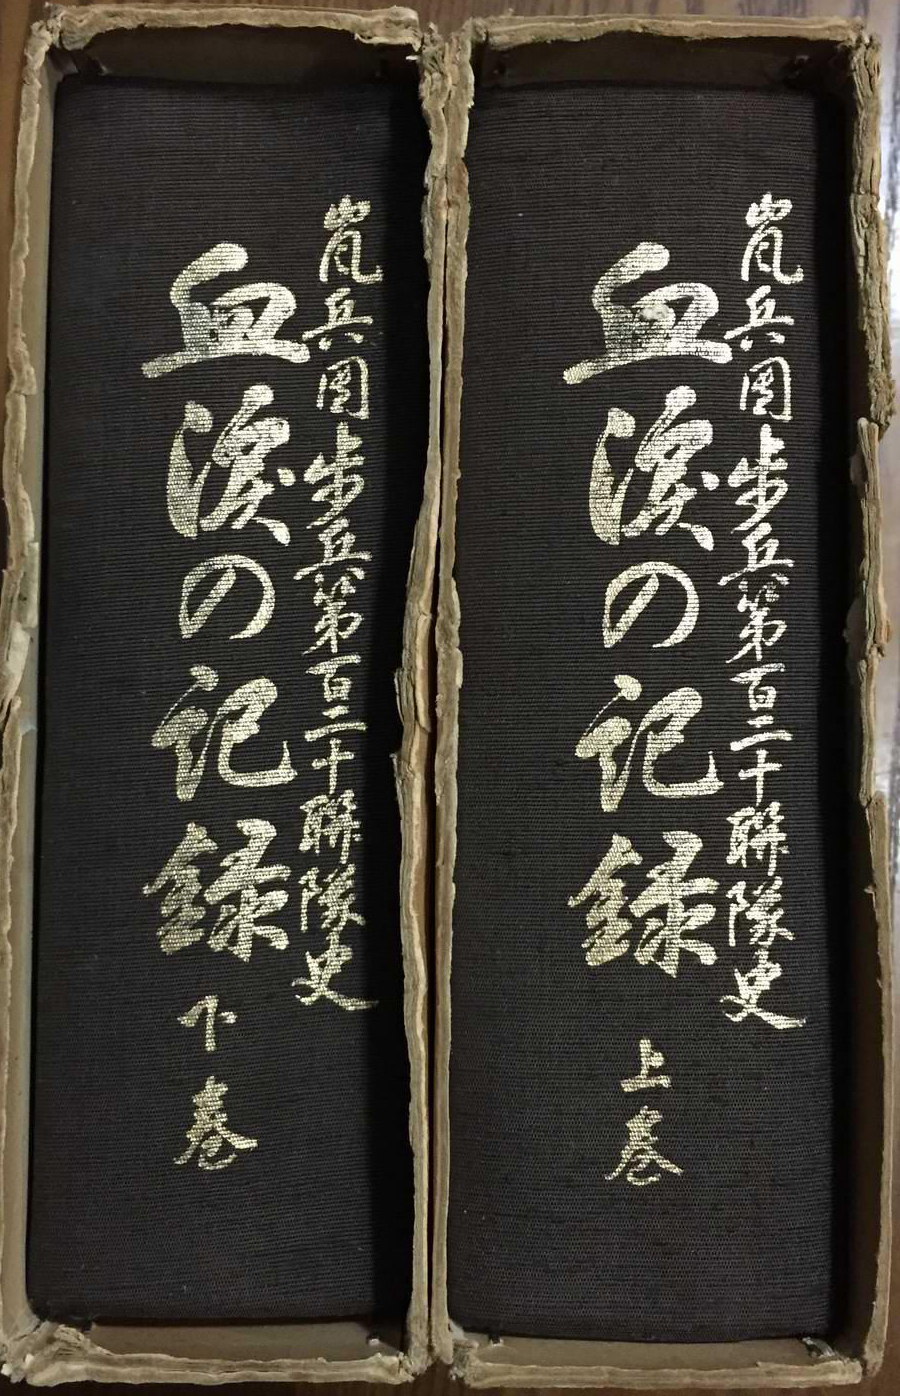 嵐兵団歩兵第百二十聯隊史
血涙の記録 上巻
嵐兵団歩兵第百二十聯隊史
血涙の記録 下巻